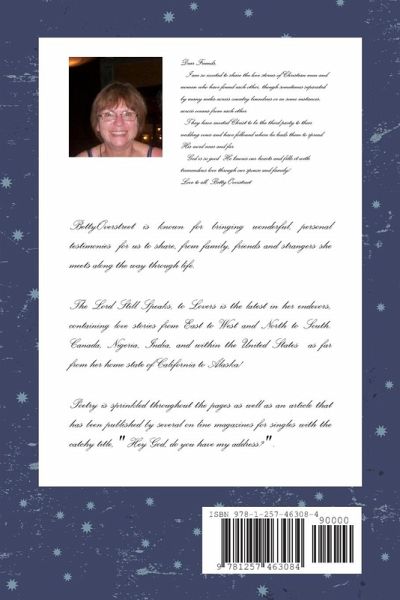 Dear Friends,
I am so excited to share the love stories of Christian men and
women who have found each other, though sometimes separated
by many miles across country boundries or in some instances,
across oceans from each other.
They have invited Christ to be the third party to their
wedding vows and have followed where he leads them to spread
His word near and far.
God is so good He knows our hearts and fills it with
tremendous love through our spouse and family!
Love to all, Betty Overstreet
BettyOverstreet is known for bringing wonderful, personal
testimonies for us to share, from family, friends and strangers she
meets along the way through life.
The Lord Still Speaks, to Lovers is the latest in her endevors,
containing love stories from East to West and North to South,
Canada, Nigeria, India, and within the United States as far
from her home state of California to Alaska!
Poetry is sprinkled throughout the pages as well as an article that
has been published by several on line magazines for singles with the
catchy title, " Hey God, do you have my address?" .
ISBN 978-1-257-46308-4
90000
9 781257 463084